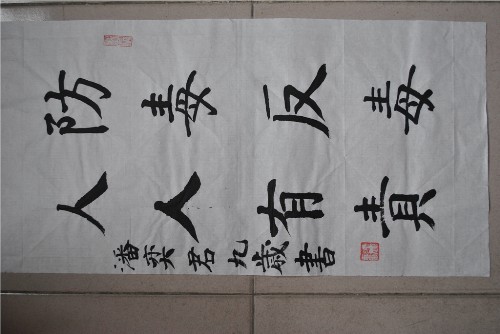 防毒反毒
人人有責
潘奕君九歲書